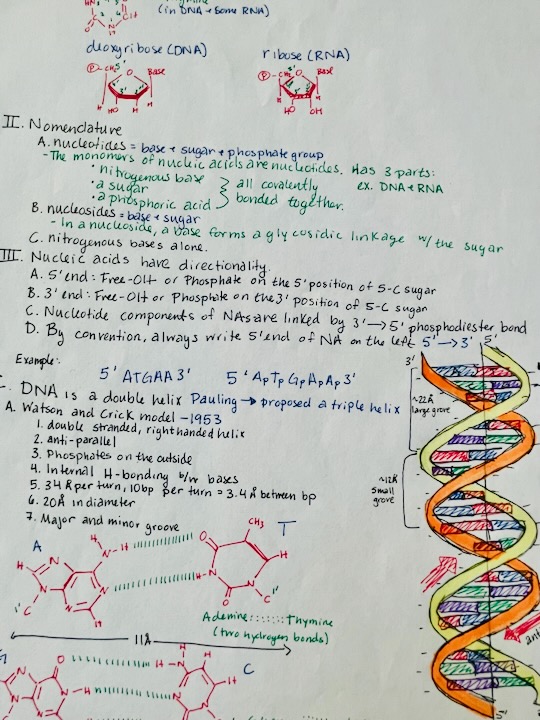 (in DNA + Some RNA)
deoxyribose (DNA)
ribose (RNA)
P -CH₂ 5' O Base
HO H
P -CH₂ O Base
HO OH
II. Nomenclature
A. nucleotides = base + sugar + phosphate group
- The monomers of nucleic acids are nucleotides. Has 3 parts:
• nitrogenous base
• a sugar
• a phosphoric acid
all covalently
bonded together.
ex. DNA + RNA
B. nucleosides = base + sugar
- In a nucleoside, a base forms a glycosidic linkage w/ the sugar
C. nitrogenous bases alone.
III. Nucleic acids have directionality.
A. 5' end: Free-OH or Phosphate on the 5' position of 5-C sugar
B. 3' end: Free-OH or Phosphate on the 3' position of 5-C sugar
C. Nucleotide components of NAs are linked by 3' → 5' phosphodiester bond
D. By convention, always write 5' end of NA on the left 5' → 3'
Example:
5' ATGAA 3'
5' ApTpGpApAp3'
DNA is a double helix Pauling → proposed a triple helix
A. Watson and Crick model - 1953
1. double stranded, right handed helix
2. anti-parallel
3. Phosphates on the outside
4. Internal H-bonding b/w bases
5. 34 Å per turn, 10bp per turn = 3.4 Å between bp
6. 20Å in diameter
7. Major and minor groove
3'
5'
~22Å
large grove
~12Å
small
grove
anti
5'
A
T
CH₃
H
N
O
C
1'
Adenine ::::::: Thymine
(two hydrogen bonds)
11Å
G
C